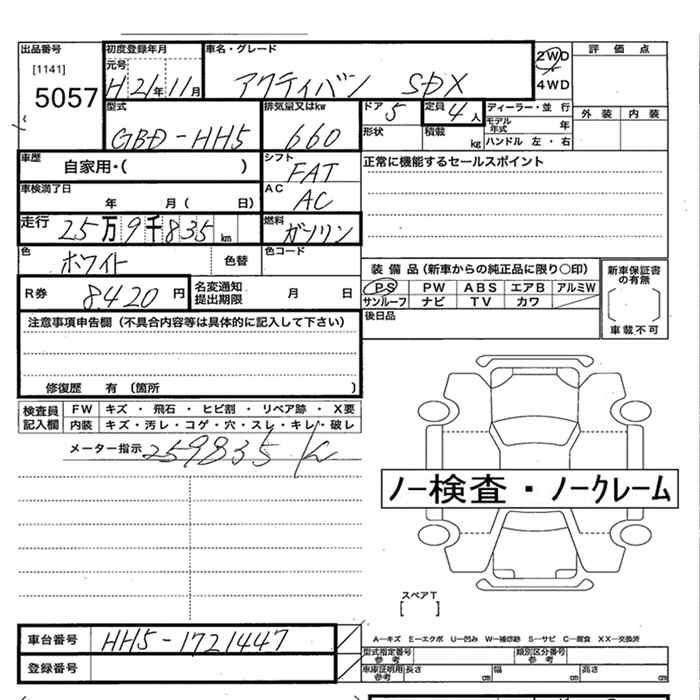 出品番号 初度登録年月 車名・グレード 評価点
[1141] 元号 2WD
5057 H 21年 11月 アクティバン SDX 4WD
型式 排気量又はkw ドア 5 定員 4人 ディーラー・並行 外装 内装
モデル年式 年
GBD-HH5 660 形状 積載 kg ハンドル 左・右
車歴 自家用・( ) シフト FAT 正常に機能するセールスポイント
車検満了日 年 月( 日) AC AC
走行 25万9千835km 燃料 ガソリン
色 ホワイト 色替 色コード
装備品(新車からの純正品に限り○印) 新車保証書の有無
R券 8420円 名変通知提出期限 月 日 PS PW ABS エアB アルミW
サンルーフ ナビ TV カワ
車載不可
注意事項申告欄(不具合内容等は具体的に記入して下さい) 後日品
修復歴 有(箇所 )
検査員記入欄 FW キズ・飛石・ヒビ割・リペア跡・X要
内装 キズ・汚レ・コゲ・穴・スレ・キレ・破レ
メーター指示 259835K
ノー検査・ノークレーム
スペアT
[ ]
車台番号 HH5-1721447 A—キズ E—エクボ U—凹み W—補修跡 S—サビ C—腐食 XX—交換済
型式指定番号 参考 類別区分番号 参考
登録番号 車庫証明用参考 長さ cm 幅 cm 高さ cm